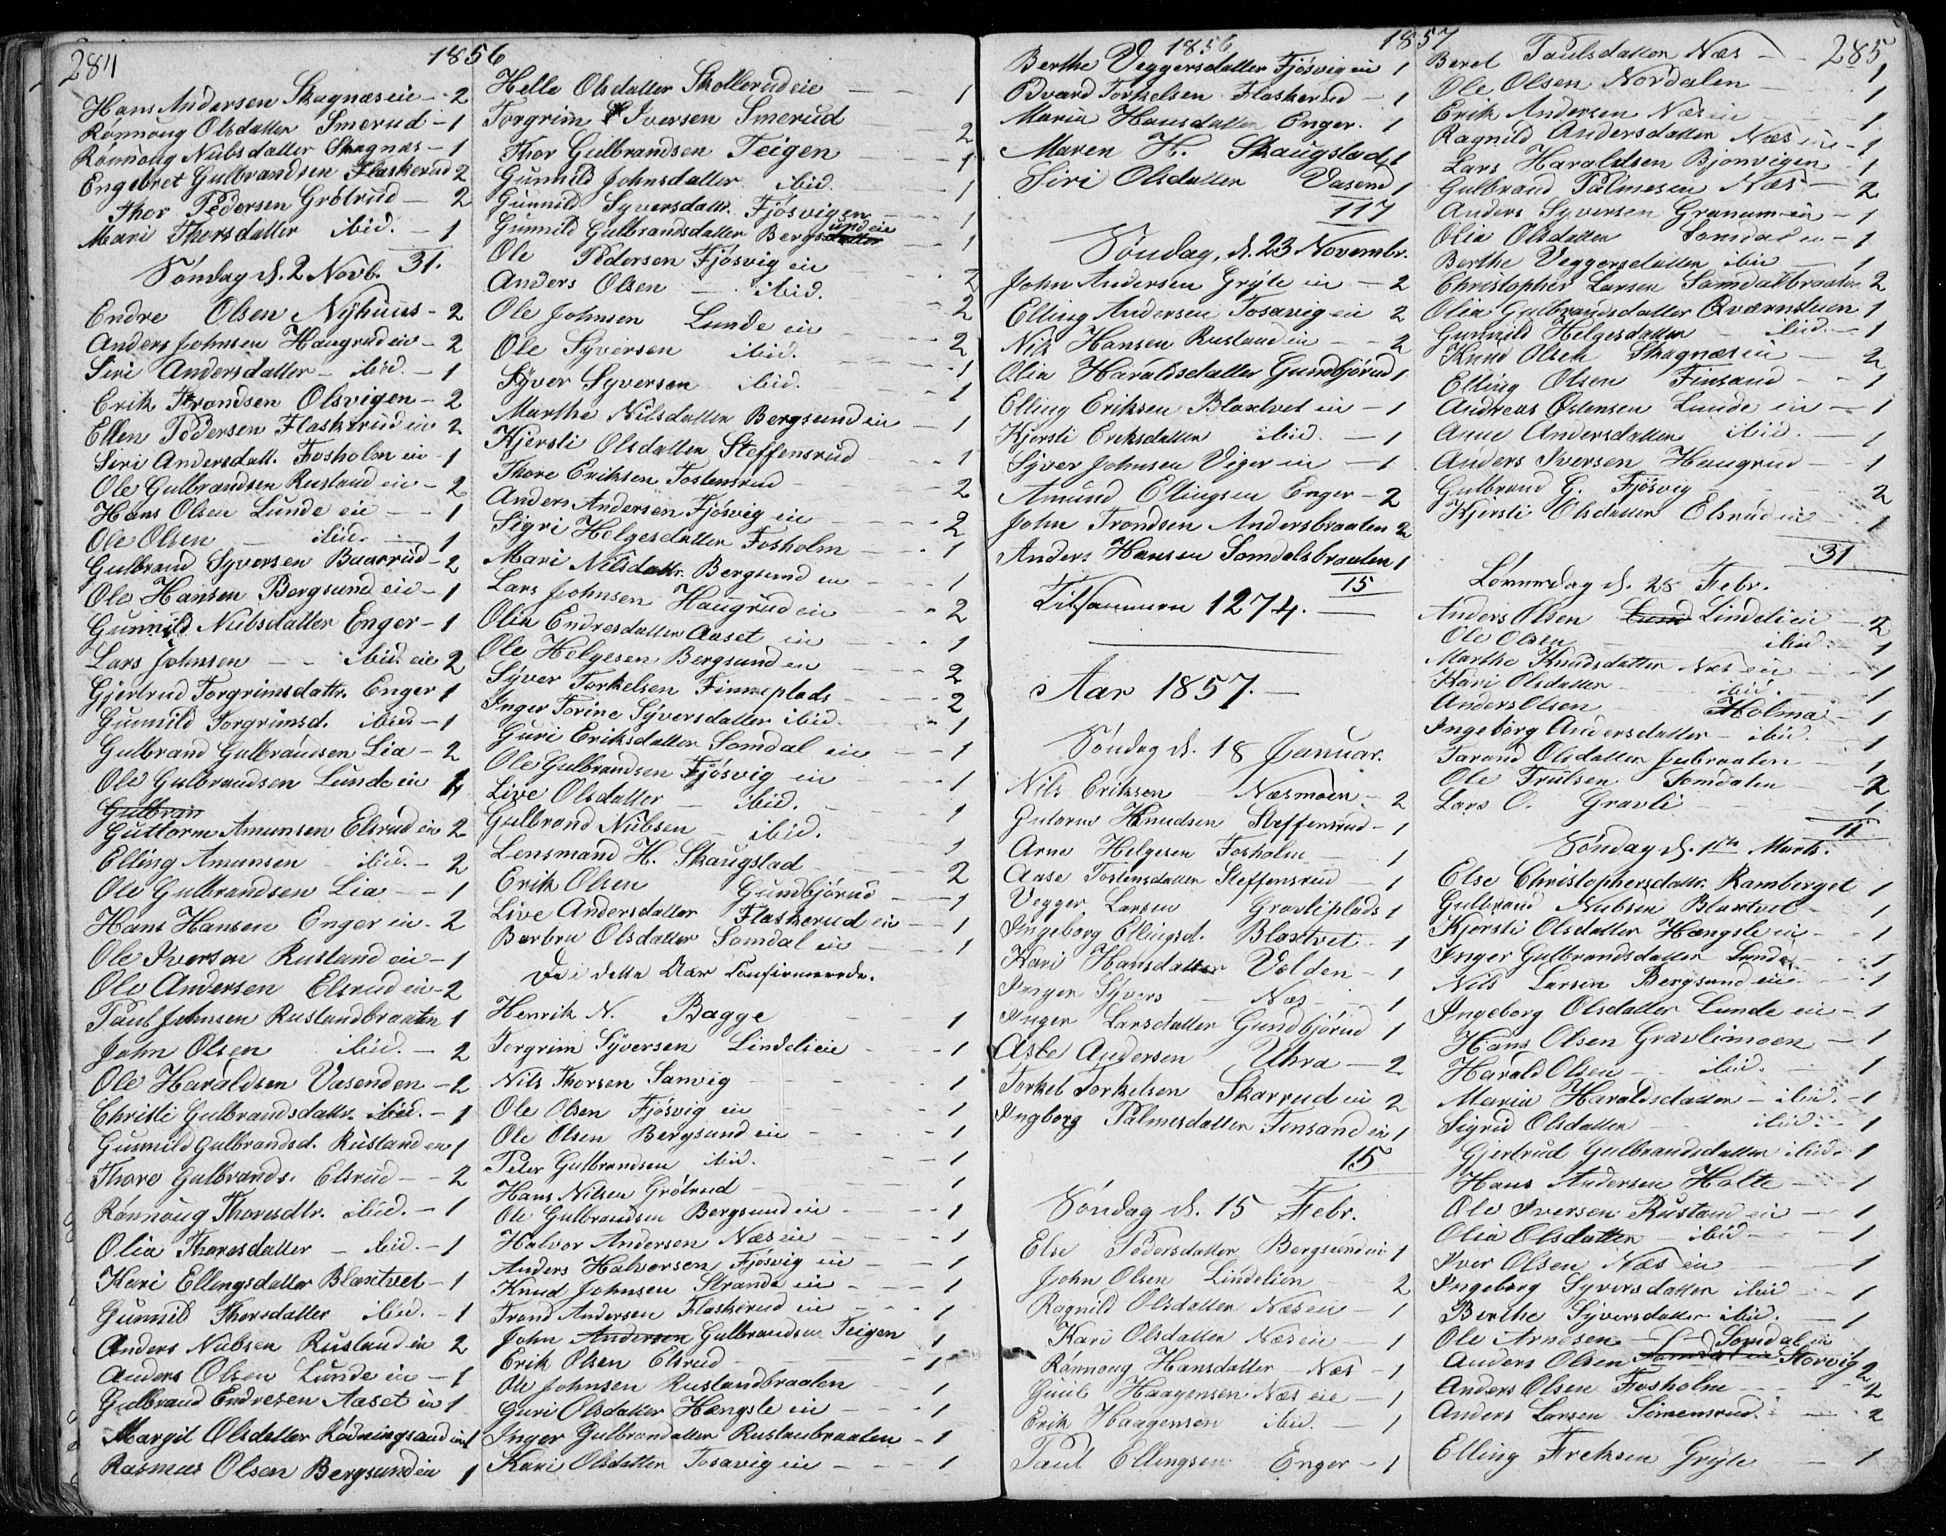 284
1856
Hans Andersen Skagnæs eie - 2
Rønnoug Olsdatter Smerud - 1
Rønnoug Nubsdatter Skagnæs - 1
Engebret Gulbrandsen Flaskerud 2
Thor Pedersen Grøtrud - 2
Mari Thorsdatter ibid. - 1
31.
Søndag d. 2 Novb.
Endre Olsen Nÿhuus - 2
Anders Johnsen Haugrud eie - 2
Siri Andersdatter - ibid. - 1
Erik Trondsen Olsvigen - 2
Ellen Pedersen Flaskerud eie 2
Siri Andersdatt. Fosholm eie - 1
Ole Gulbrandsen Rustand eie - 2
Hans Olsen Lunde eie - - 1
Ole Olsen - ibid. - 1
Gulbrand Syversen Baarrud - 2
Ole Hansen Bergsund eie - 1
Gunnild Nubsdatter Enger - 1
Lars Johnsen - - ibid. eie 2
Gjertrud Torgrimsdatr. Enger 1
Gunnild Torgrimsd. ibid - 1
Gulbrand Gulbrandsen Lia - 2
Ole Gulbrandsen Lunde eie
Gulbran
Guttorm Amunsen Elsrud eie 2
Elling Amunsen - ibid. - 2
Ole Gulbrandsen Lia - - 1
Hans Hansen Enger eie - 2
Ole Iversen Rustand eie - 1
Ole Andersen Elsrud eie - 2
Paul Johnsen Rustandbraaten 1
John Olsen ibid. - 2
Ole Haraldsen Vasenden - 2
Christi Gulbrandsdatr. ibid. - 1
Gunnild Gulbrandsd. Rustand eie 1
Thore Gulbrands. Elsrud - - 2
Rønnoug Thoresdtr. ibid. - 1
Olia Thoresdatter - ibid. - 1
Kari Ellingsdatter Blaxtvet - 1
Gunnild Thorsdatter ibid. - 1
Anders Nubsen Rustand eie 2
Anders Olsen Lunde eie - 1
Gulbrand Endresen Aaset eie 1
Margit Olsdatter Rødningsand eie 1
Rasmus Olsen Bergsund eie 1
Helle Olsdatter Skollerud eie - - 1
Torgrim Iversen Smerud 2
Thor Gulbrandsen Teigen 1
Gunnild Johnsdatter ibid. - 1
Gunnild Syversdatr. Fjøsvigen - 1
Gunnild Gulbrandsdatter Bergsdatter und eie - 1
Ole Pedersen Fjøsvig eie - 2
Anders Olsen - ibid. - 2
Ole Johnsen Lunde eie - 2
Ole Syversen ibid. - 1
Sÿver Syversen ibid. - 1
Marthe Nilsdatter Bergsund eie - 1
Kjersti Olsdatter Steffensrud - 1
Thore Eriksen Tostensrud - 2
Anders Andersen Fjøsvig eie - 2
Sigri Helgesdatter Fosholm - 1
Mari Nilsdatr. Bergsund eie - 1
Lars Johnsen Haugrud eie - 2
Olia Endresdatter Aaset eie - 1
Ole Helgesen Bergsund eie - 2
Sÿver Torkelsen Finneplads - 2
Inger Torine Sÿversdatter ibid. - 1
Guri Eriksdatter Somdal eie - 1
Ole Gulbrandsen Fjøsvig eie - 1
Live Olsdatter - ibid. - 1
Gulbrand Nubsen - ibid. 1
Lensmand H. Skaugstad 2
Erik Olsen Gundbjørud - 1
Live Andersdatter Flaskerud eie - 1
Barbru Olsdatter Somdal eie - 1
De i dette Aar Confirmerede.
Henrik N. Bagge 1
Torgrim Sÿversen Lindeli eie - 1
Nils Thorsen Sanvig - 1
Ole Olsen Fjøsvig eie - 1
Ole Olsen Bergsund eie - 1
Peter Gulbrandsen ibid. - 1
Hans Nilsen Grøtrud - 1
Ole Gulbrandsen Bergsund eie - 1
Halvor Andersen Næs eie - 1
Anders Halvorsen Fjøsvig eie - 1
Knud Johnsen Strande eie - 1
Trond Andersen Flaskerud eie - 1
John Andersen Gulbrandsen Teigen 1
Erik Olsen Elsrud - 1
Ole Johnsen Rustandbraaten - 1
Guri Olsdatter Hængsle eie - 1
Inger Gulbrandatter Rustanbraaten - 1
Kari Olsdatter Tosavig eie - 1
1856
Berthe Veggersdatter Fjøsvig eie 1
Edvard Torkelsen Flaskerud - 1
Maria Hansdatter Enger. 1
Maren H. Skaugstad 1
Siri Olsdatter Vasend 1
117
Søndag, d. 23 Novembr.
John Andersen Grÿte eie - 2
Elling Andersen Tosavig eie 2
Nils Hansen Rustand eie - - 2
Olia Haraldsdatter Gundbjørud 1
Elling Eriksen Blaxtvet eie - 1
Kjersti Eriksdatter ibid. - 1
Sÿver Johnsen Viger eie - 1
Amund Ellingsen Enger - 2
John Trondsen Andersbraaten 2
Anders Hansen Somdalsbraaten 1
15
Tilsammen 1274. -
Aar 1857. -
Søndag d. 18 Januar.
Nils Eriksen Næsmoen - 2
Gutorm Knudsen Steffensrud - 1
Arne Helgesen Fosholm - 1
Aase Tostensdatter Steffensrud - 1
Vegger Larsen Gravliplads 1
Ingeborg Ellingsd. Blaxtvet - 1
Kari Hansdatter Volden - 1
Inger Sÿvers - Næs - 1
Inger Larsdatter Gundbjørud 1
Asle Andersen Uhra - 2
Torkel Torkelsen Skarrud eie 2
Ingborg Palmesdatter Finsand eie 1
15
Søndag d. 15 Febr.
Else Pedersdatter Bergsund eie 1
John Olsen Lindelien - 2
Ragnild Olsdatter Næs eie - 1
Kari Olsdatter Næs eie - 1
Rønnoug Hansdatter Næs - 1
Haagensen Næs eie - 1
Erik Haagensen ibid. - 1
Paul Ellingsen Enger - 1
1857
285
Beret Paulsdatter Næs - - 1
Ole Olsen Nordalen - 1
Erik Andersen Næs eie - 1
Ragnild Andersdatter Næs eie - 1
Lars Haraldsen Bjonvigen - 1
Gulbrand Palmesen Næs - 2
Anders Syversen Granum eie - 1
Olia Olsdatter Somdal eie - 1
Berthe Veggersdatter ibid - 1
Christopher Larsen Somdalbraaten 2
Olia Gulbrandsdatter Qværnstuen 1
Gunnild Helgesdatter ibid. - 1
Knud Olsen Skagnæs eie - 2
Elling Olsen Finsand - - 1
Andreas Østensen Lunde eie - 1
Anne Andersdatter ibid. - 1
Anders Iversen Haugrud - 1
Gulbrand G. Fjøsvig - 2
Kjersti Olsdatter Elsrud eie 1
31
Lørverdag d. 28 Febr.
Anders Olsen Lund Lindeli eie - 2
Ole Olsen ibid. - 1
Marthe Knudsdatter Næs eie - 1
Kari Olsdatter - ibid. - 1
Anders Olsen Holma - 1
Ingeborg Andersdatter - ibid. - 1
Tarand Olsdatter Jubraaten - 1
Ole Trulsen Somdalen - 2
Lars O. Gravli - 1
11
Søndag d. 1ste Marts.
Else Christophersdatr. Ramberget 1
Gulbrand Nubsen Blaxtvet - 1
Kjersti Olsdatter Hængsle eie - 1
Inger Gulbrandsdatter Lunde - 1
Nils Larsen Bergsund eie - 1
Ingeborg Olsdatter Lunde eie - 1
Hans Olsen Gravlimoen - 1
Harald Olsen - ibid. 1
Maria Haraldsdatter - ibid. - 1
Sigrid Olsdatter - ibid. - 1
Gjertrud Gulbrandsdatter ibid. 1
Hans Andersen Holte - 1
Ole Iversen Rustand eie - 1
Olia Olsdatter - ibid - 1
Iver Olsen Næs eie - 1
Ingeborg Syversdatter ibid - 1
Berthe Sÿversdatter ibid. - 1
Ole Arnesen - Somdal eie
Anders Olsen Somdal eie Storvig 2
Anders Olsen Fosholm - 2
Anders Larsen Simensrud. - 2
Elling Eriksen Grÿte - 1